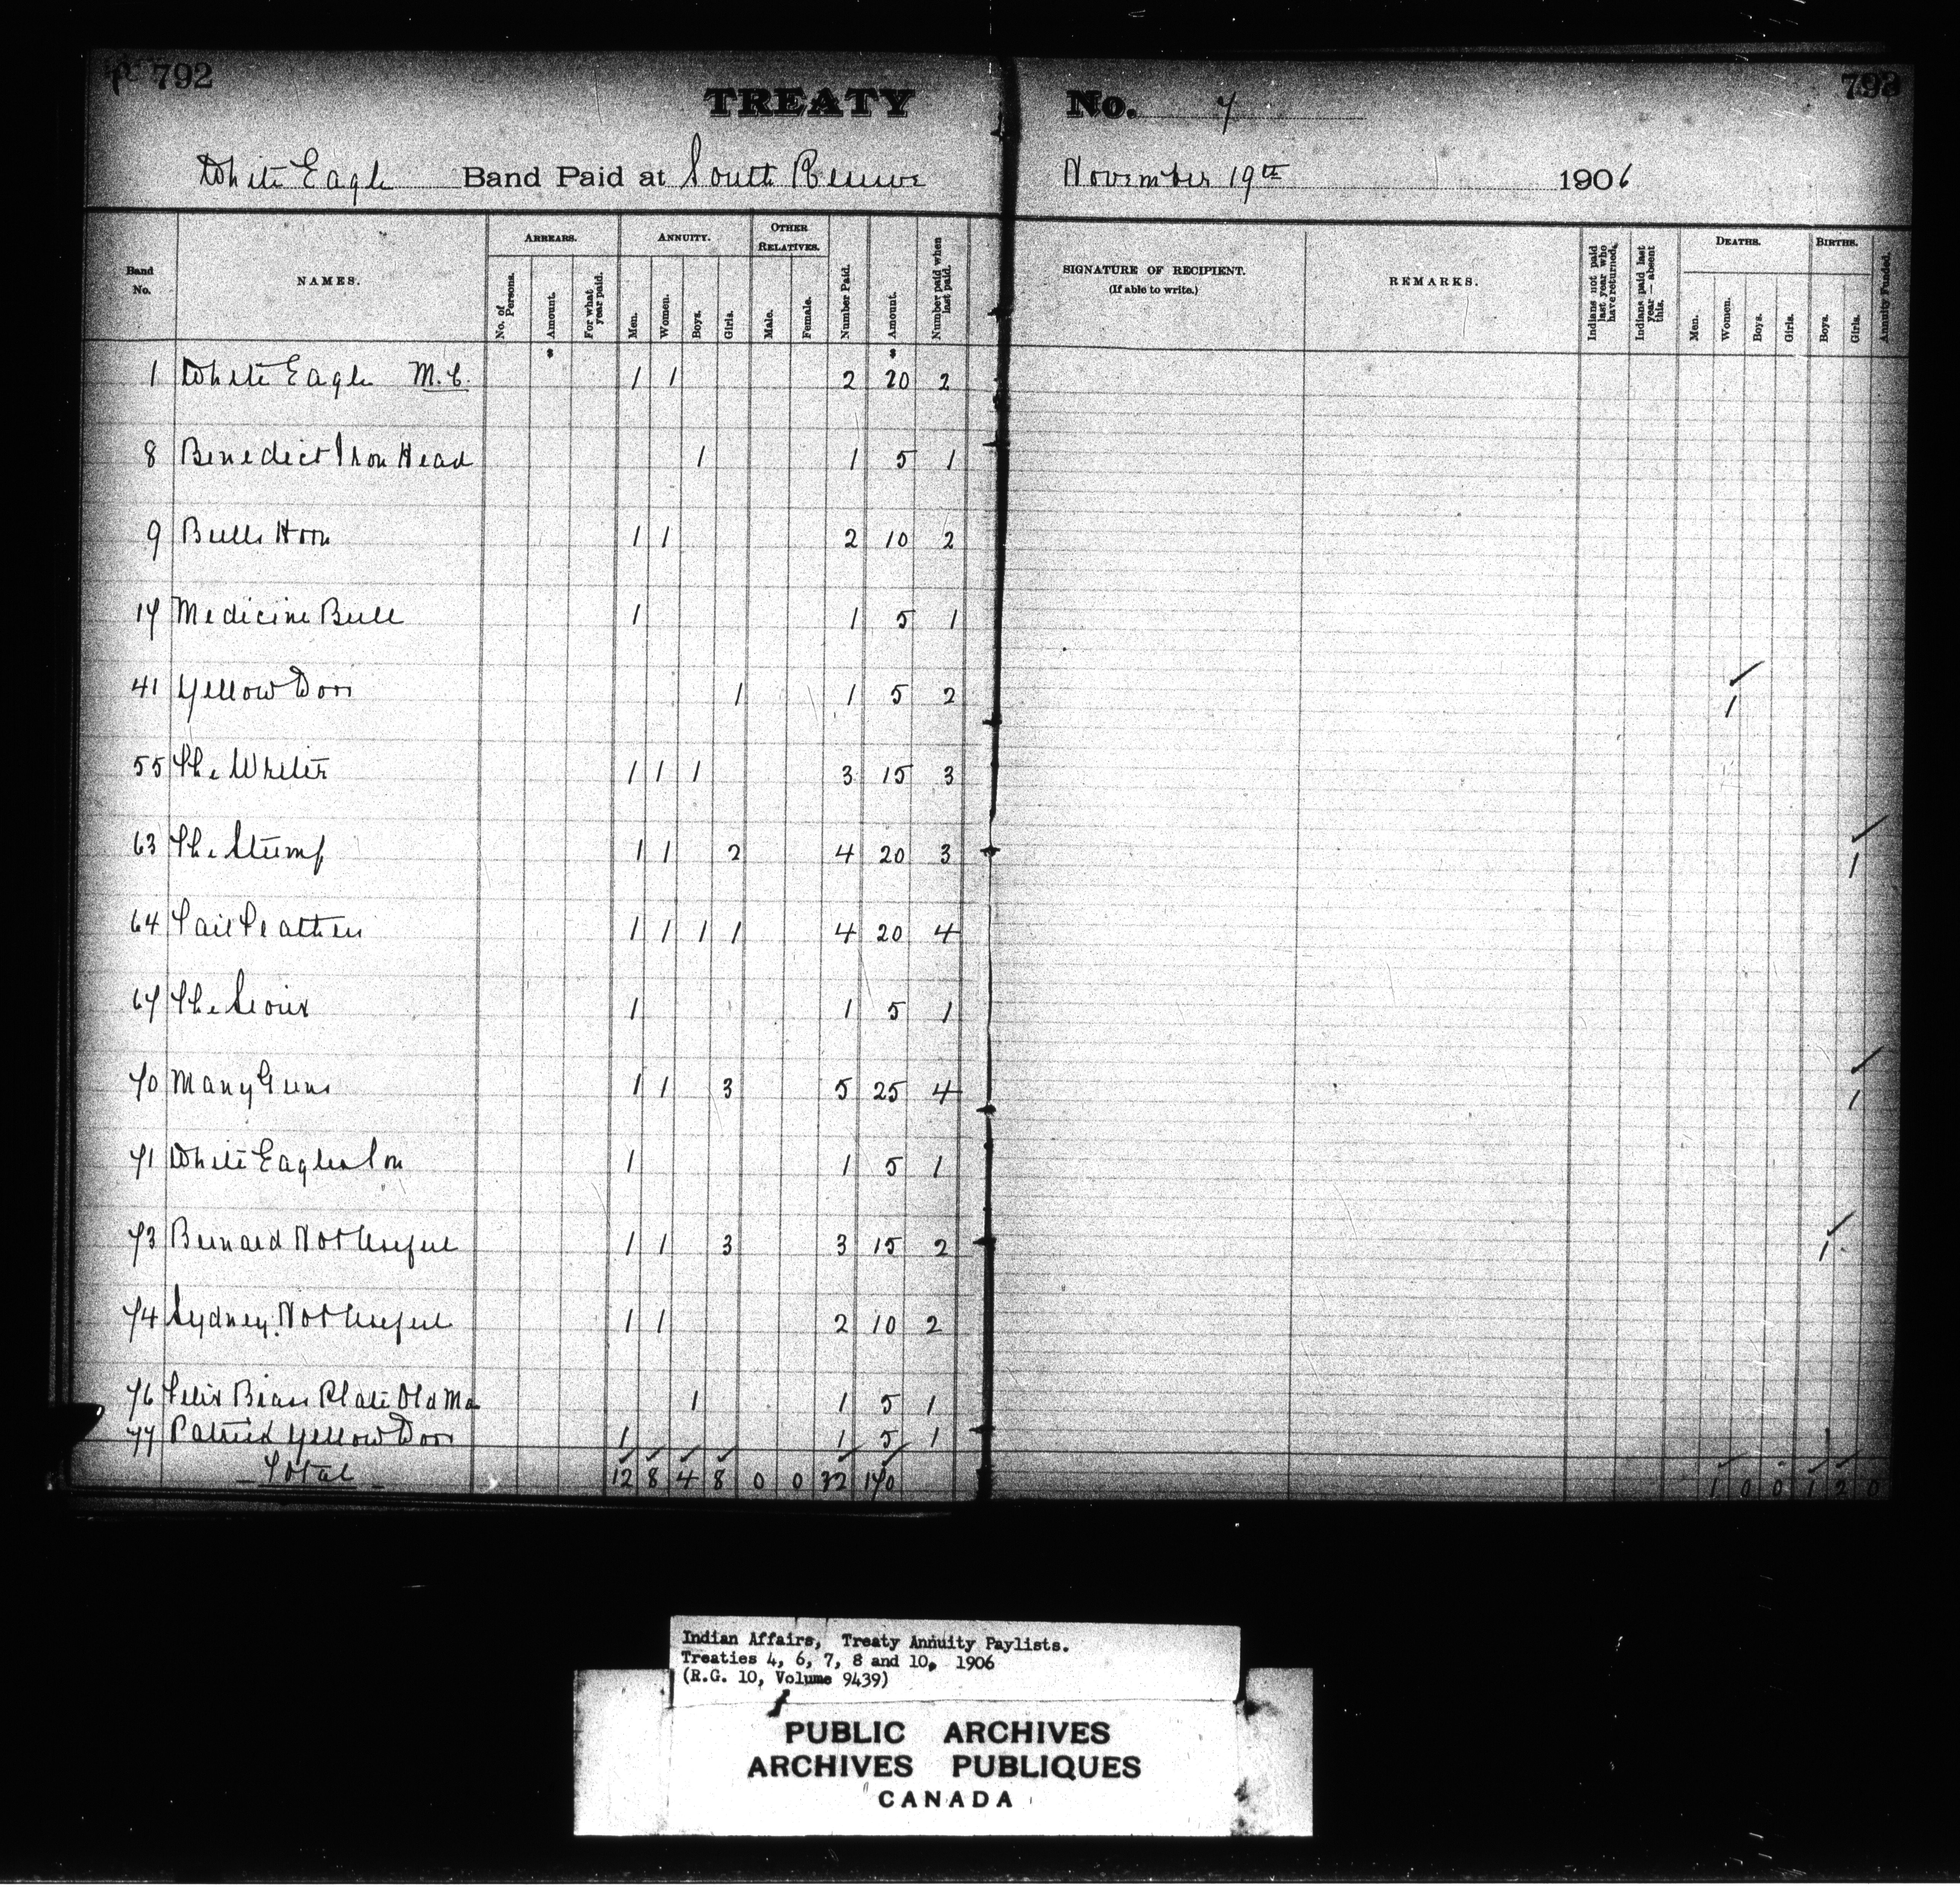 792
TREATY No. 7
793
White Eagle Band Paid at South Reserve November 19th 1906
Band No. NAMES. ARREARS. No. of Persons. Amount. For what year paid. ANNUITY. Men. Women. Boys. Girls. OTHER RELATIVES. Male. Female. Number Paid. Amount. Number paid when last paid. SIGNATURE OF RECIPIENT. (If able to write.) REMARKS. Indians not paid last year who have returned. Indians paid last year — absent this. DEATHS. Men. Women. Boys. Girls. BIRTHS. Boys. Girls. Annuity Funded.
1 White Eagle M.C. 1 1 2 20 2
8 Benedict Iron Head 1 1 5 1
9 Bulls Horn 1 1 2 10 2
17 Medicine Bull 1 1 5 1
41 Yellow Door 1 1 5 2 1
55 The Writer 1 1 1 3 15 3
63 The Stump 1 1 2 4 20 3 1
64 Tail Feathers 1 1 1 1 4 20 4
67 The Sioux 1 1 5 1
70 Many Guns 1 1 3 5 25 4 1
71 White Eagles Son 1 1 5 1
73 Bernard Not Useful 1 1 3 3 15 2 1
74 Sydney Not Useful 1 1 2 10 2
76 Felix Brass Plate Old Ma 1 1 5 1
77 Patrick Yellow Door 1 1 5 1
Total 12 8 4 8 0 0 32 170 1 0 0 1 2 0
Indian Affairs, Treaty Annuity Paylists.
Treaties 4, 6, 7, 8 and 10, 1906
(R.G. 10, Volume 9439)
PUBLIC ARCHIVES
ARCHIVES PUBLIQUES
CANADA